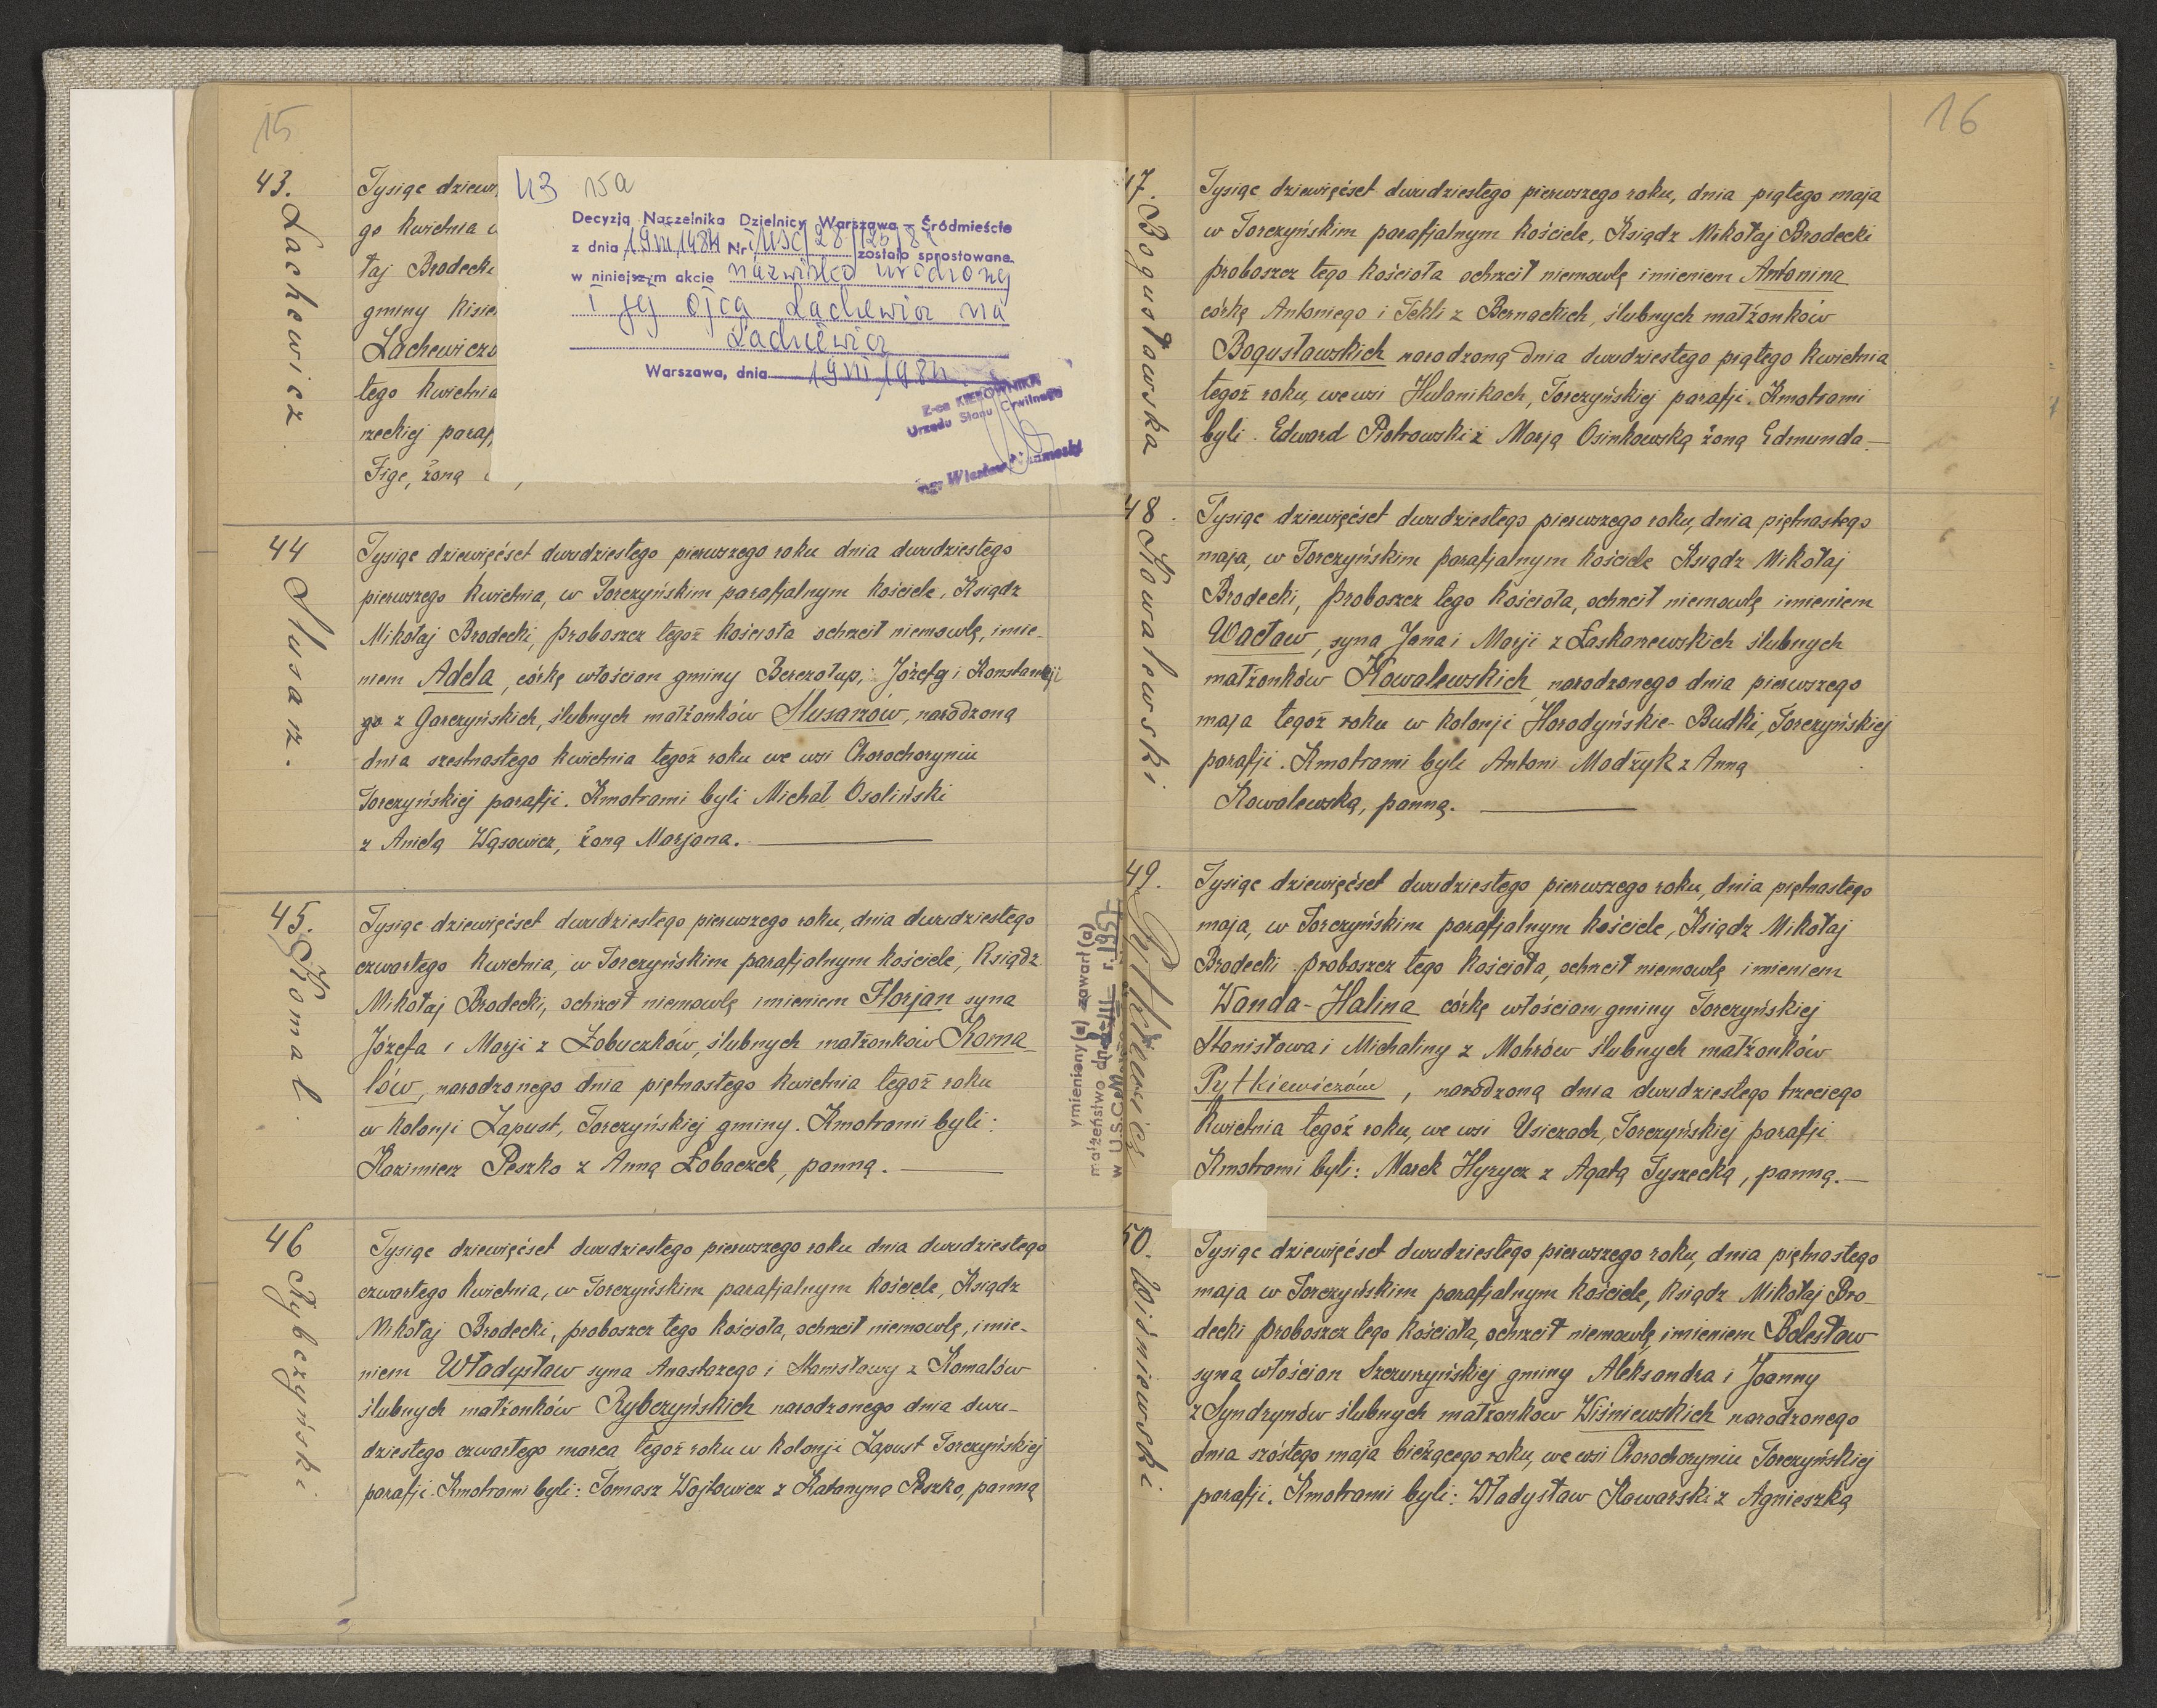 15
43.
Lachewicz.
Tysiąc dziew
go kwietnia
łaj Brodecki
gminy Kisie
Lachewiczo
tego kwietnia
rzeckiej paraf
Fige, żoną
43 15a
Decyzją Naczelnika Dzielnicy Warszawa – Śródmieście
z dnia 19 VII 1984 Nr zostało sprostowane
w niniejszym akcie nazwisko urodzonej
i jej ojca Lachewicz na
Warszawa, dnia 19 VII 1984
Z-ca KIEROWNIKA
Urzędu Stanu Cywilnego
mgr Wiesław
44
Slusarz.
Tysiąc dziewięćset dwudziestego pierwszego roku dnia dwudziestego
pierwszego kwietnia, w Torczyńskim parafjalnym kościele, Ksiądz
Mikołaj Brodecki, proboszcz tegoż kościoła ochrzcił niemowlę, imie-
niem Adela, córkę włościan gminy Berezołup; Józefa i Konstancji
z Garczyńskich, ślubnych małżonków Slusarzów, narodzoną
dnia szestnastego kwietnia tegoż roku we wsi Chorochoryniu
Torczyńskiej parafji. Kmotrami byli Michał Osoliński
z Anielą Wąsowicz, żoną Marjana.
45.
Komal.
Tysiąc dziewięćset dwudziestego pierwszego roku, dnia dwudziestego
czwartego kwietnia, w Torczyńskim parafjalnym kościele, Ksiądz
Mikołaj Brodecki, ochrzcił niemowlę imieniem Florjan syna
Józefa i Marji z Łobuczków, ślubnych małżonków Koma-
lów, narodzonego dnia piętnastego kwietnia tegoż roku
w kolonji Zapust, Torczyńskiej gminy. Kmotrami byli:
Kazimierz Peszko z Anną Łobaczek, panną.
46
Rybczyński.
Tysiąc dziewięćset dwudziestego pierwszego roku dnia dwudziestego
czwartego kwietnia, w Torczyńskim parafjalnym kościele, Ksiądz
Mikołaj Brodecki, proboszcz tego kościoła, ochrzcił niemowlę, imie-
niem Władysław syna Anastazego i Stanisławy z Komalów
ślubnych małżonków Rybczyńskich narodzonego dnia dwu-
dziestego czwartego marca tegoż roku w kolonji Zapust Torczyńskiej
parafji. Kmotrami byli: Tomasz Wojtowicz z Katarzyną Peszko, panną
16
47.
Bogusławska
Tysiąc dziewięćset dwudziestego pierwszego roku, dnia piątego maja
w Torczyńskim parafjalnym kościele, Ksiądz Mikołaj Brodecki
proboszcz tego kościoła ochrzcił niemowlę imieniem Antonina
córkę Antoniego i Tekli z Bernackich, ślubnych małżonków
Bogusławskich narodzoną dnia dwudziestego piątego kwietnia
tegoż roku, we wsi Hulanikach, Torczyńskiej parafji. Kmotrami
byli. Edward Piotrowski z Marją Osinkowską żoną Edmunda.
48.
Kowalewski
Tysiąc dziewięćset dwudziestego pierwszego roku, dnia piętnastego
maja, w Torczyńskim parafjalnym kościele Ksiądz Mikołaj
Brodecki, proboszcz tego kościoła, ochrzcił niemowlę imieniem
Wacław, syna Jana i Marji z Łaskarzewskich ślubnych
małżonków Kowalewskich narodzonego dnia pierwszego
maja tegoż roku w kolonji Horodyńskie-Budki, Torczyńskiej
parafji. Kmotrami byli Antoni Modżyk z Anną
Kowalewską, panną.
49.
Pytkiewicz
ymieniony(a) zawarł(a)
małżeństwo dn. r. 1957
w U.S.C.
Tysiąc dziewięćset dwudziestego pierwszego roku, dnia piętnastego
maja, w Torczyńskim parafjalnym kościele, Ksiądz Mikołaj
Brodecki proboszcz tego kościoła, ochrzcił niemowlę imieniem
Wanda-Halina córkę włościan gminy Torczyńskiej
Stanisława i Michaliny z Mohrów ślubnych małżonków
Pytkiewiczów, narodzoną dnia dwudziestego trzeciego
kwietnia tegoż roku, we wsi Usiczach, Torczyńskiej parafji
Kmotrami byli: Marek Hyrycz z Agatą Tyszecką, panną.
50.
Wiśniewski.
Tysiąc dziewięćset dwudziestego pierwszego roku, dnia piętnastego
maja w Torczyńskim parafjalnym kościele, ksiądz Mikołaj Bro-
decki proboszcz tego kościoła, ochrzcił niemowlę imieniem Bolesław
syna włościan Szczurzyńskiej gminy Aleksandra i Joanny
z Syndrynów ślubnych małżonków Wiśniewskich narodzonego
dnia szóstego maja bieżącego roku, we wsi Chorochoryniu Torczyńskiej
parafji. Kmotrami byli: Władysław Kowarski z Agnieszką